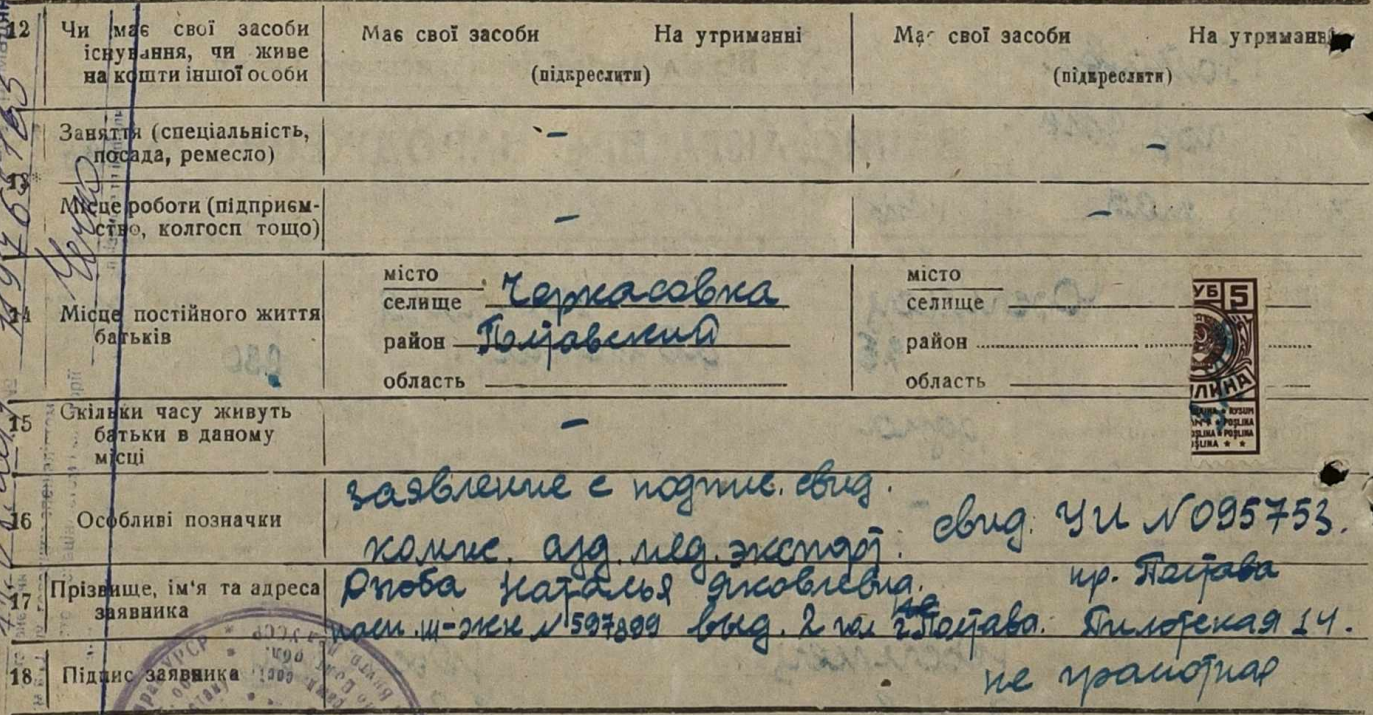 12 Чи має свої засоби існування, чи живе на кошти іншої особи
Має свої засоби На утриманні
(підкреслити)
Має свої засоби На утриманні
(підкреслити)
13 Заняття (спеціальність, посада, ремесло)
–
–
Місце роботи (підприємство, колгосп тощо)
–
–
14 Місце постійного життя батьків
місто
селище Черкасовка
район Полтавский
область
місто
селище
район
область
УБ 5
15 Скільки часу живуть батьки в даному місці
–
16 Особливі позначки
заявление с подпис. свид.
свид. УИ №095753.
комис. мед. эксперт.
17 Прізвище, ім'я та адреса заявника
Наталья Яковлевна. пр. Полтава
№597899 выд. 2 г. Полтава. Пилотская 14.
18 Підпис заявника
не грамотная